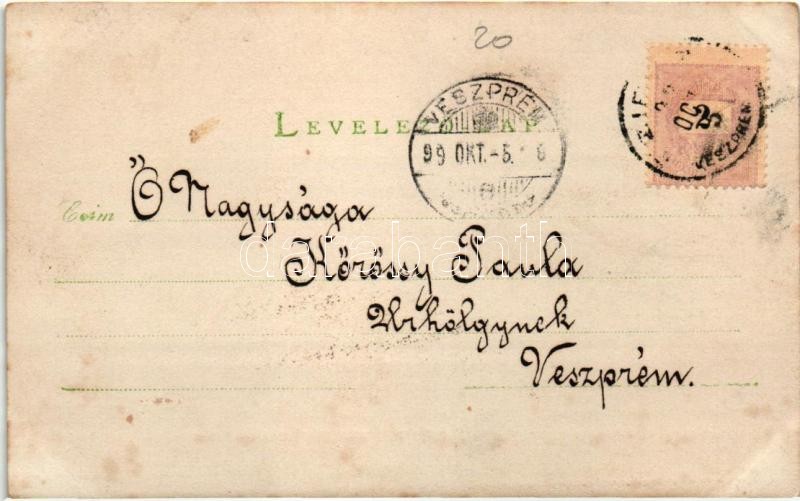 20
LEVELEZŐ-LAP
VESZPRÉM
99 OKT.-5.
2
VESZPRÉM
Czim
Ő Nagysága
Kőrössy Paula
Úrhölgynek
Veszprém.
darabanth